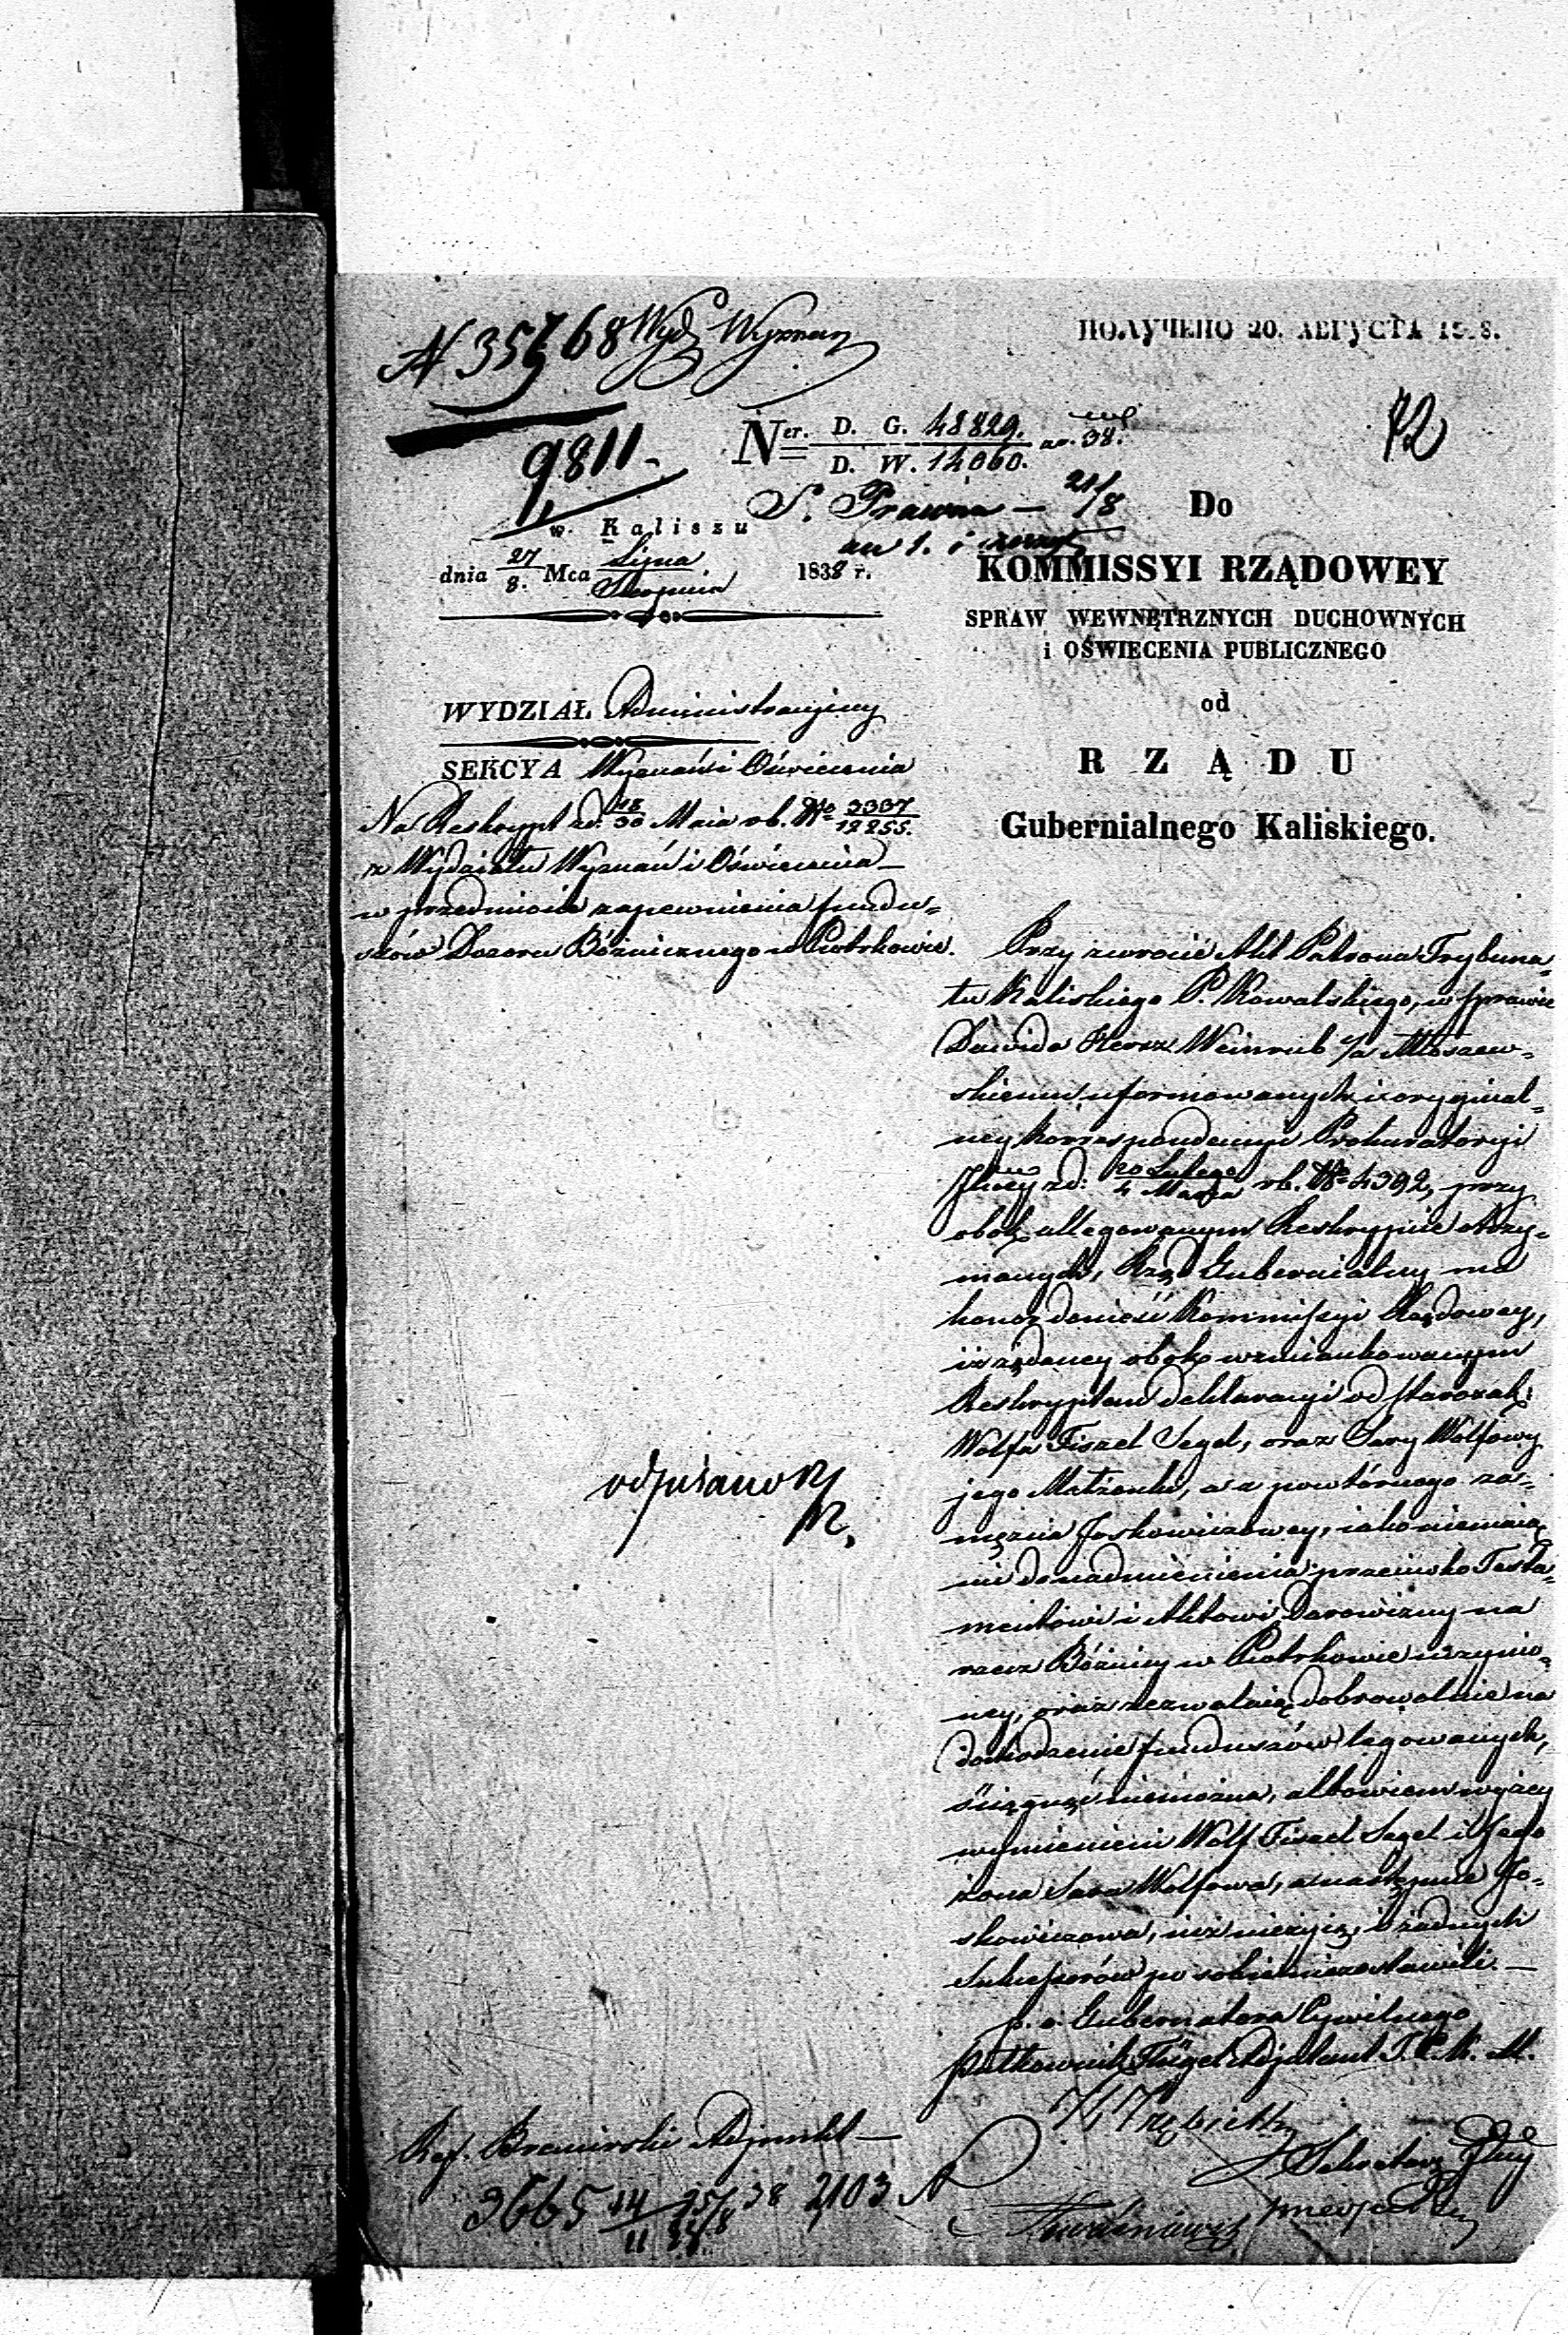 N 35768 Wydz Wyznań
ПОЛУЧЕНО 20. АВГУСТА 18 8.
9811
Ner. D. G. 48829.
D. W. 14060.
42
S. Prawna — 21/8
w Kaliszu
dnia 27/8. Mca Lipca/Sierpnia 1838 r.
Do
KOMMISSYI RZĄDOWEY
SPRAW WEWNĘTRZNYCH DUCHOWNYCH
i OŚWIECENIA PUBLICZNEGO
od
RZĄDU
Gubernialnego Kaliskiego.
WYDZIAŁ Administracyiny
SEKCYA Wyznań i Oświecenia
Na Reskrypt zd. 18/30 Maia rb. No 3337/12255.
z Wydziału Wyznań i Oświecenia
w przedmiocie zapewnienia fundu=
szów Dozoru Bóźnicznego w Piotrkowie.
Przy zwrocie Akt Patrona Trybuna=
łu Kaliskiego P. Kowalskiego, w sprawie
Dawida Hersz Weinrub c/a Młoszew=
skiemu uformowanych i oryginal=
ney korrespondencyi Prokuratoryi
Jlney zd: 20 Lutego/4 Marca rb. No 4392, przy
obok allegowanym Reskrypcie otrzy=
manych, Rząd Gubernialny ma
honor donieść Kommissyi Rządowey,
iż żądaney obok wzmiankowanym
Reskryptem deklaracyi od starozak:
Wolfa Fiszel Segel, oraz Sary Wolfowy
jego Małżonki, a z powtórnego za=
męzcia Joskowiczowey, iako niemaią
nic do nadmienienia przeciwko Testa=
mentowi i Aktowi Darowizny na
rzecz Bóżnicy w Piotrkowie uczynio=
ney, oraz zezwalaią dobrowolnie na
dochodzenie funduszów legowanych,
ściągnąć niemożna, albowiem wyżey
wymienieni Wolf Fiszel Segel i Jego
żona Sara Wolfowa, a następnie Jo=
skowiczowa, iuż nieżyią, i żadnych
Sukcessorów po sobie niezostawili. —
odpisano
p. o. Gubernatora Cywilnego
Pułkownik Flügel Adjutant J. C. K. M.
Sekretarz Jlny
Ref. Adjunkt —
3665 2103